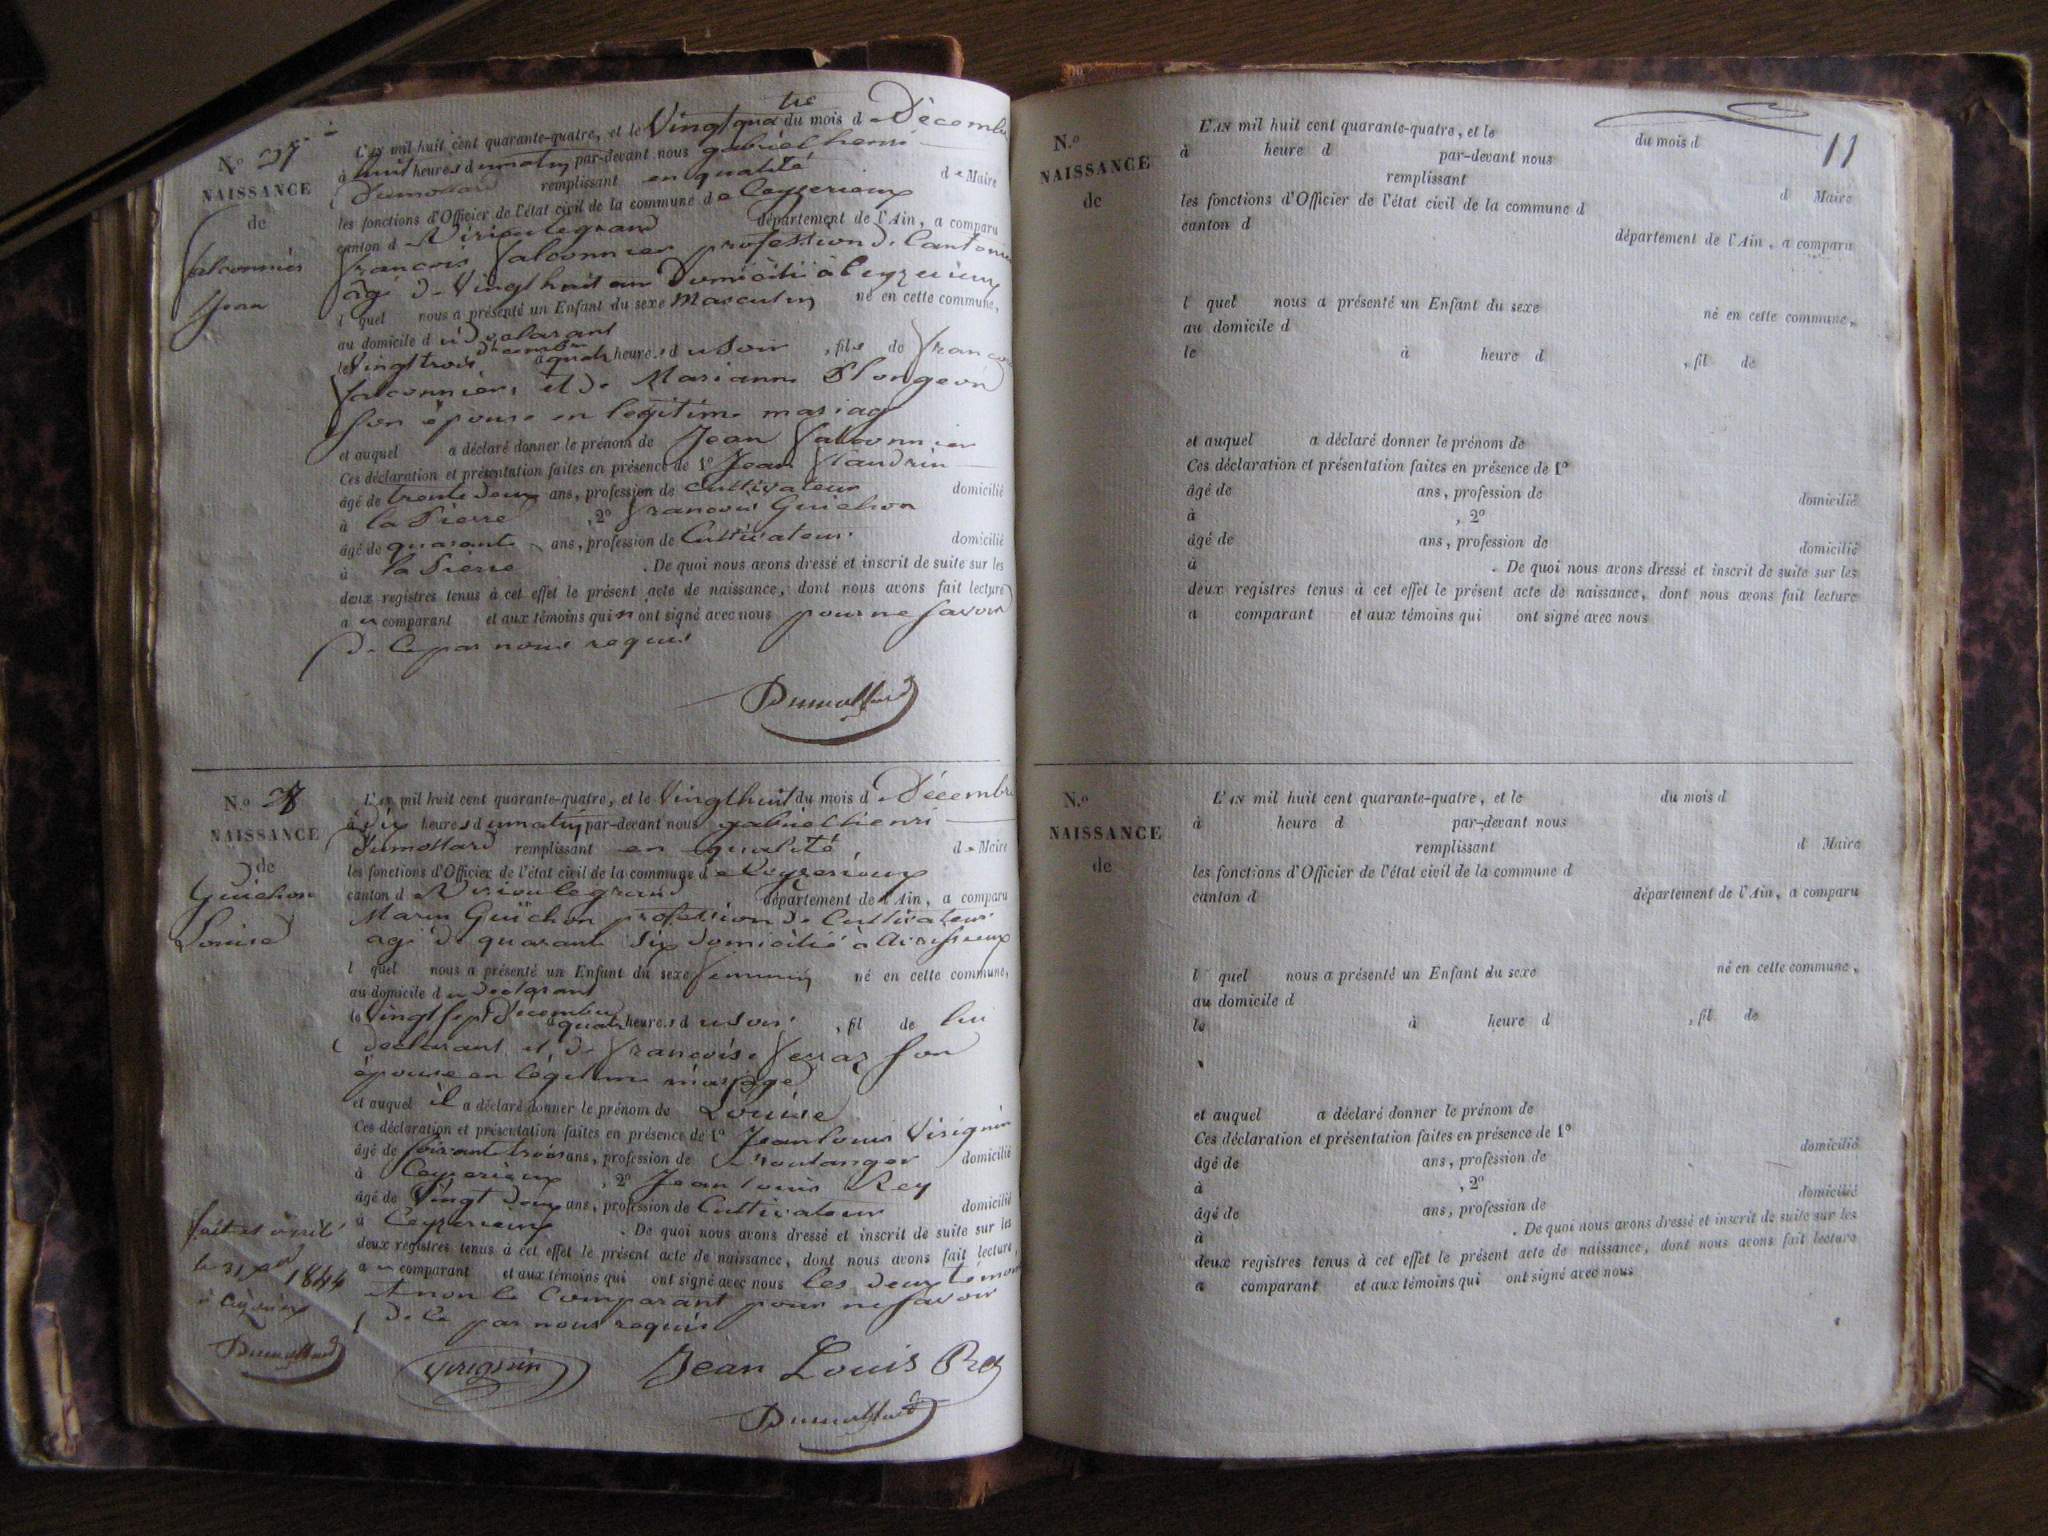 N.o 27
NAISSANCE
de
falconnier
Jean
L'AN mil huit cent quarante-quatre, et le Vingt quatre du mois d Décembre
à huit heures d u matin par-devant nous gabriel henri
Dumollard remplissant en qualité d e Maire
les fonctions d'Officier de l'état civil de la commune d e Ceyzerieux
canton d Virieulegrand département de l'Ain, a comparu
françois falconnier profession de Cantonnier
agé de Vingt huit an Domicilié à Ceyzerieux
l quel nous a présenté un Enfant du sexe Masculin né en cette commune,
au domicile d u Déclarant
le Vingt trois Décembre à quatre heures d u Soir , fils de françois
falconnier, et de Marianne Plongeon
Son épouse en legitime mariage
et auquel a déclaré donner le prénom de Jean falconnier
Ces déclaration et présentation faites en présence de 1o Jean flandrin
âgé de trente deux ans, profession de cultivateur domicilié
à la Pierre , 2o françois Guichon
âgé de quarante ans, profession de Cultivateur domicilié
à la Pierre . De quoi nous avons dressé et inscrit de suite sur les
deux registres tenus à cet effet le présent acte de naissance, dont nous avons fait lecture
a u comparant et aux témoins qui n ont signé avec nous pour ne Savoir
De Ce par nous requis
Dumollard
N.o 28
NAISSANCE
de
Guichon
Louise
L'AN mil huit cent quarante-quatre, et le Vingt huit du mois d Décembre
à dix heures d u matin par-devant nous gabriel henri
Dumollard remplissant en qualité d e Maire
les fonctions d'Officier de l'état civil de la commune d e Ceyzerieux
canton d Virieulegrand département de l'Ain, a comparu
Marin Guichon profession de Cultivateur
agé de quarante Six Domicilié à Avrissieux
l quel nous a présenté un Enfant du sexe feminin né en cette commune,
au domicile d u Declarant
le Vingt Sept Decembre à quatre heures d u Soir , fil de lui
declarant et de françoise ferraz Son
épouse en légitime mariage
et auquel il a déclaré donner le prénom de Louise
Ces déclaration et présentation faites en présence de 1o Jean louis Virignin
âgé de Soixante trois ans, profession de Boulanger domicilié
à Ceyzerieux , 2o Jean louis Rey
âgé de Vingt Deux ans, profession de Cultivateur domicilié
à Ceyzerieux . De quoi nous avons dressé et inscrit de suite sur les
deux registres tenus à cet effet le présent acte de naissance, dont nous avons fait lecture,
a u comparant et aux témoins qui ont signé avec nous les deux témoins
et non le Comparant pour ne Savoir
De Ce par nous requis
le 31 Xbre 1844
Dumollard
Virignin Jean Louis Rey
Dumollard
11
N.o
NAISSANCE
de
L'AN mil huit cent quarante-quatre, et le du mois d
à heure d par-devant nous
remplissant d Maire
les fonctions d'Officier de l'état civil de la commune d
canton d département de l'Ain, a comparu
l quel nous a présenté un Enfant du sexe né en cette commune,
au domicile d
le à heure d , fil de
et auquel a déclaré donner le prénom de
Ces déclaration et présentation faites en présence de 1o
âgé de ans, profession de domicilié
à , 2o
âgé de ans, profession de domicilié
à . De quoi nous avons dressé et inscrit de suite sur les
deux registres tenus à cet effet le présent acte de naissance, dont nous avons fait lecture
a comparant et aux témoins qui ont signé avec nous
N.o
NAISSANCE
de
L'AN mil huit cent quarante-quatre, et le du mois d
à heure d par-devant nous
remplissant d Maire
les fonctions d'Officier de l'état civil de la commune d
canton d département de l'Ain, a comparu
l quel nous a présenté un Enfant du sexe né en cette commune,
au domicile d
le à heure d , fil de
et auquel a déclaré donner le prénom de
Ces déclaration et présentation faites en présence de 1o
âgé de ans, profession de domicilié
à , 2o
âgé de ans, profession de domicilié
à . De quoi nous avons dressé et inscrit de suite sur les
deux registres tenus à cet effet le présent acte de naissance, dont nous avons fait lecture
a comparant et aux témoins qui ont signé avec nous